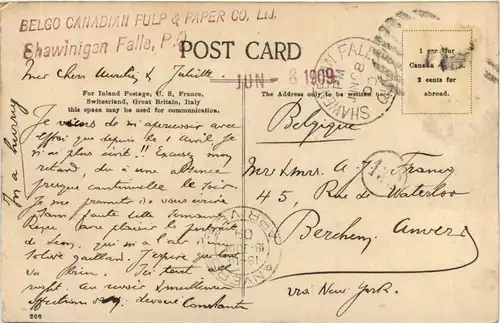 BELGO CANADIAN PULP & PAPER CO. Ltd.
Shawinigan Falls, P.Q.
POST CARD
JUN - 8 1909
1 cent for
Canada
2 cents for
abroad.
For Inland Postage, U. S., France,
Switzerland, Great Britain, Italy
this space may be used for communication.
The Address only to be written here
In a hurry
Mes chers Aurélie & Juliette
Je viens de m'apercevoir avec
effroi que depuis le 1 Avril je
n'ai plus écrit!! Excusez mon
retard, dû à une absence
presque continuelle le soir.
Je me promets de vous écrire
sans faute cette semaine
Reçu avec plaisir le portrait
de Léon, qui m'a l'air
solide gaillard. J'espère que tout
va bien. Ici tout
right. Au revoir & meilleures
dévoué Constant
Belgique
Mr & Mrs A. Francq
45, Rue de Waterloo
Berchem Anvers
via New York.
206